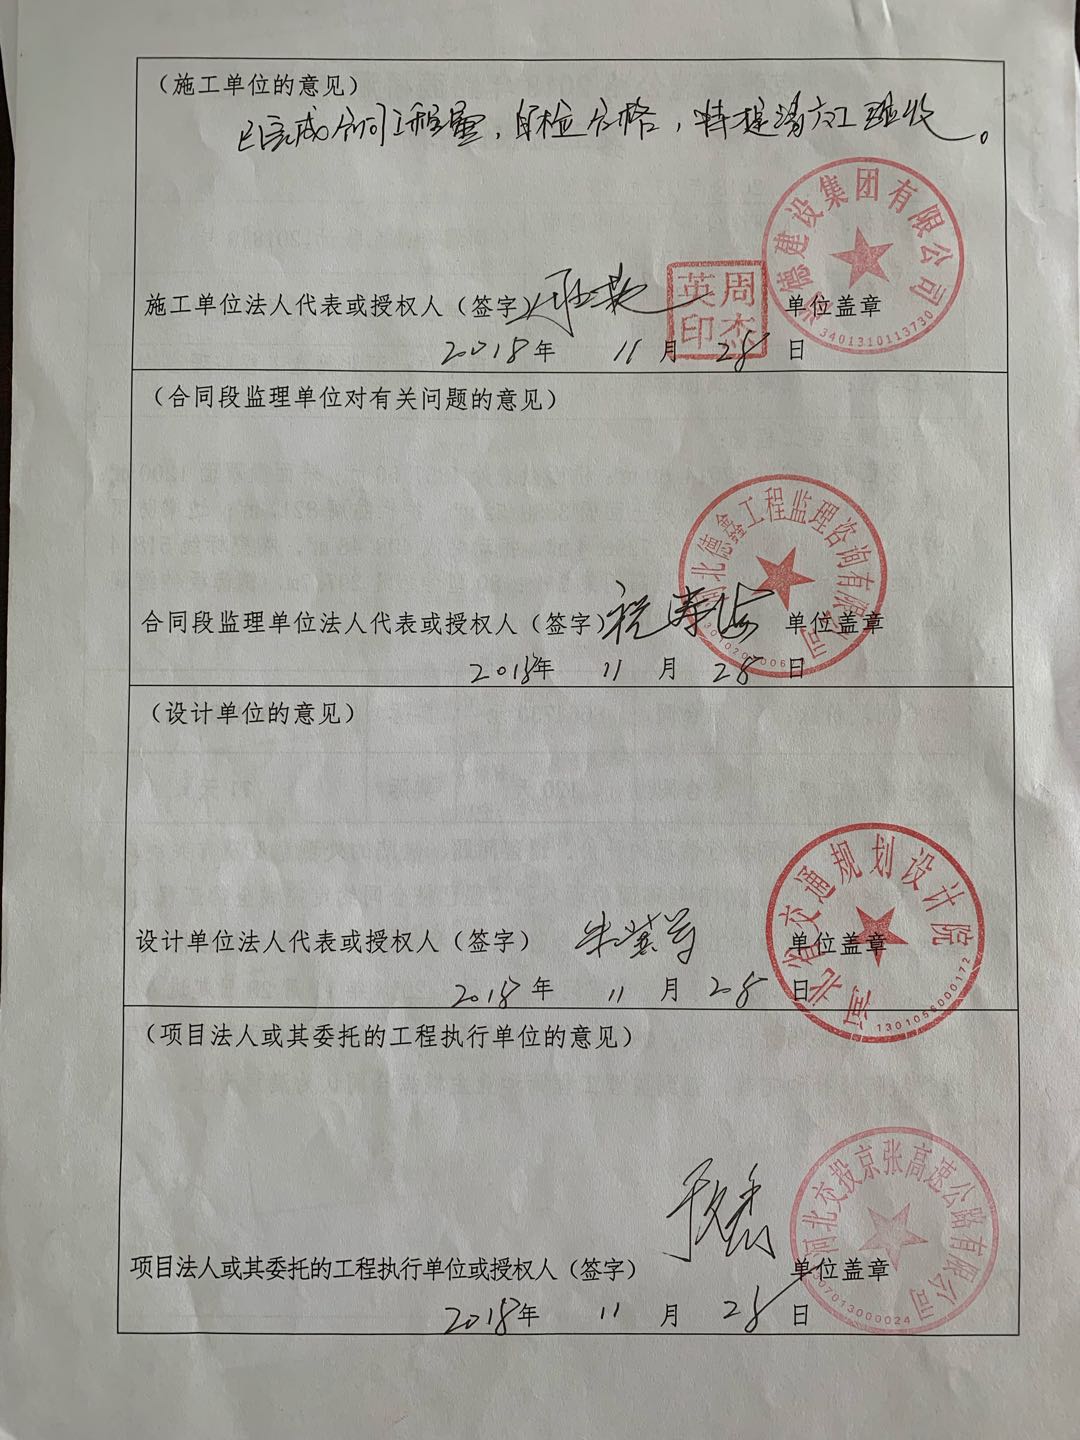 （施工单位的意见）
已完成合同工程量，自检合格，特提请交工验收。
德建设集团有限公司
3401310113730
周杰英印
施工单位法人代表或授权人（签字） 单位盖章
2018年 11月 28日
（合同段监理单位对有关问题的意见）
河北德鑫工程监理咨询有限公司
合同段监理单位法人代表或授权人（签字） 祝寿海 单位盖章
2018年 11月 28日
（设计单位的意见）
河北省交通规划设计院
1301056000172
设计单位法人代表或授权人（签字） 单位盖章
2018年 11月 28日
（项目法人或其委托的工程执行单位的意见）
河北交投京张高速公路有限公司
1307013000024
项目法人或其委托的工程执行单位或授权人（签字） 单位盖章
2018年 11月 28日